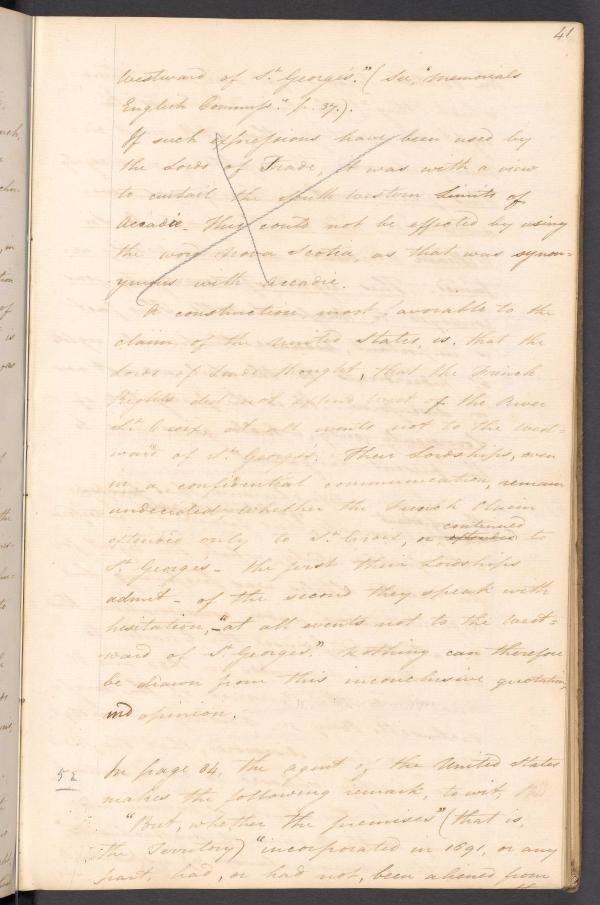 41
Westward of St. George's." (See, "Memorials
English Commiss." p. 37.).
If such expressions have been used by
the Lords of Trade, it was with a view
to curtail the South western limits of
Accadie. This could not be effected by using
the word Nova Scotia, as that was synon=
ymous with Accadie.
A construction, most favorable to the
claim of the United States, is, that the
Lords of Trade thought, that the French
Rights did not extend West of the River
St. Croix, at all events not to the West=
ward of St. George's. Their Lordships, even
in a confidential communication, remain
undecided, whether the French Claim
continued
extended only to St. Croix, or extended to
St. George's - the first their Lordships
admit - of the second they speak with
hesitation, - "at all events not to the West=
ward of St. George's." Nothing can therefore
be drawn from this inconclusive quotation,
and opinion.
5
In page 84, the agent of the United States
makes the following remark, to wit,
"But, whether the premises" (that is,
the Territory) "incorporated in 1691, or any
part, had, or had not, been aliened from